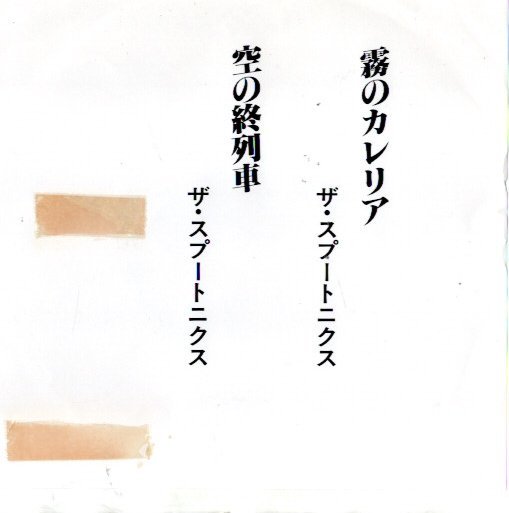 霧のカレリア
ザ・スプートニクス
空の終列車
ザ・スプートニクス